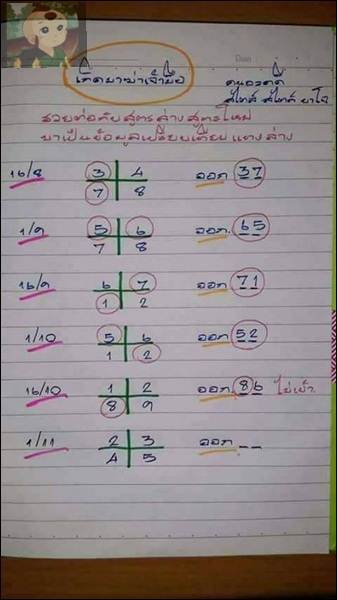 เกิดมาฆ่าเจ้ามือ
คนอวดดี
สไตล์ สไตล์ ยาใจ
รวยต่อกับสูตรล่างสูตรใหม่
มาเป็นข้อมูลเปรียบเทียบแทงล่าง
16/8 3 4 ออก 37
7 8
1/9 5 6 ออก. 65
7 8
16/9 6 7 ออก 71
1 2
1/10 5 6 ออก 52
1 2
16/10 1 2 ออก. 86 ไม่เข้า
8 9
1/11 2 3 ออก _ _
4 5